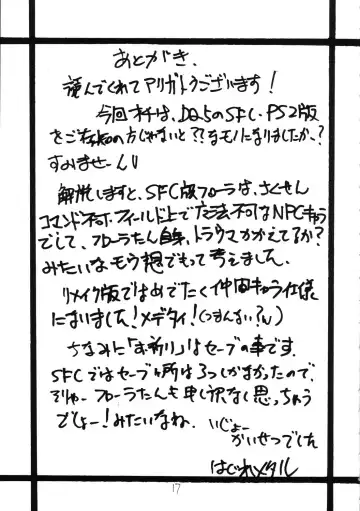 あとがき。
読んでくれてアリガトうございます!
今回オチは、DQ5のSFC・PS2版
をご存知の方じゃないと??なモノになりましたか、?
すみませーん
解説しますと、SFC版フローラは、さくせん
コマンド不可・フィールド上で会話不可なNPCキャラ
でして、フローラたん自身、トラウマかかえてるか?
みたいなモウ想でもって考えました。
リメイク版ではめでたく仲間キャラ仕様
になりました!メデタイ!(つまんない?ん)
ちなみに「お祈り」はセーブの事です。
SFCではセーブヶ所は3つしかなかったので、
そりゃーフローラたんも申し訳なく思っちゃう
でしょー!みたいなね。
いじょー
かいせつでした
はじれメタル
17